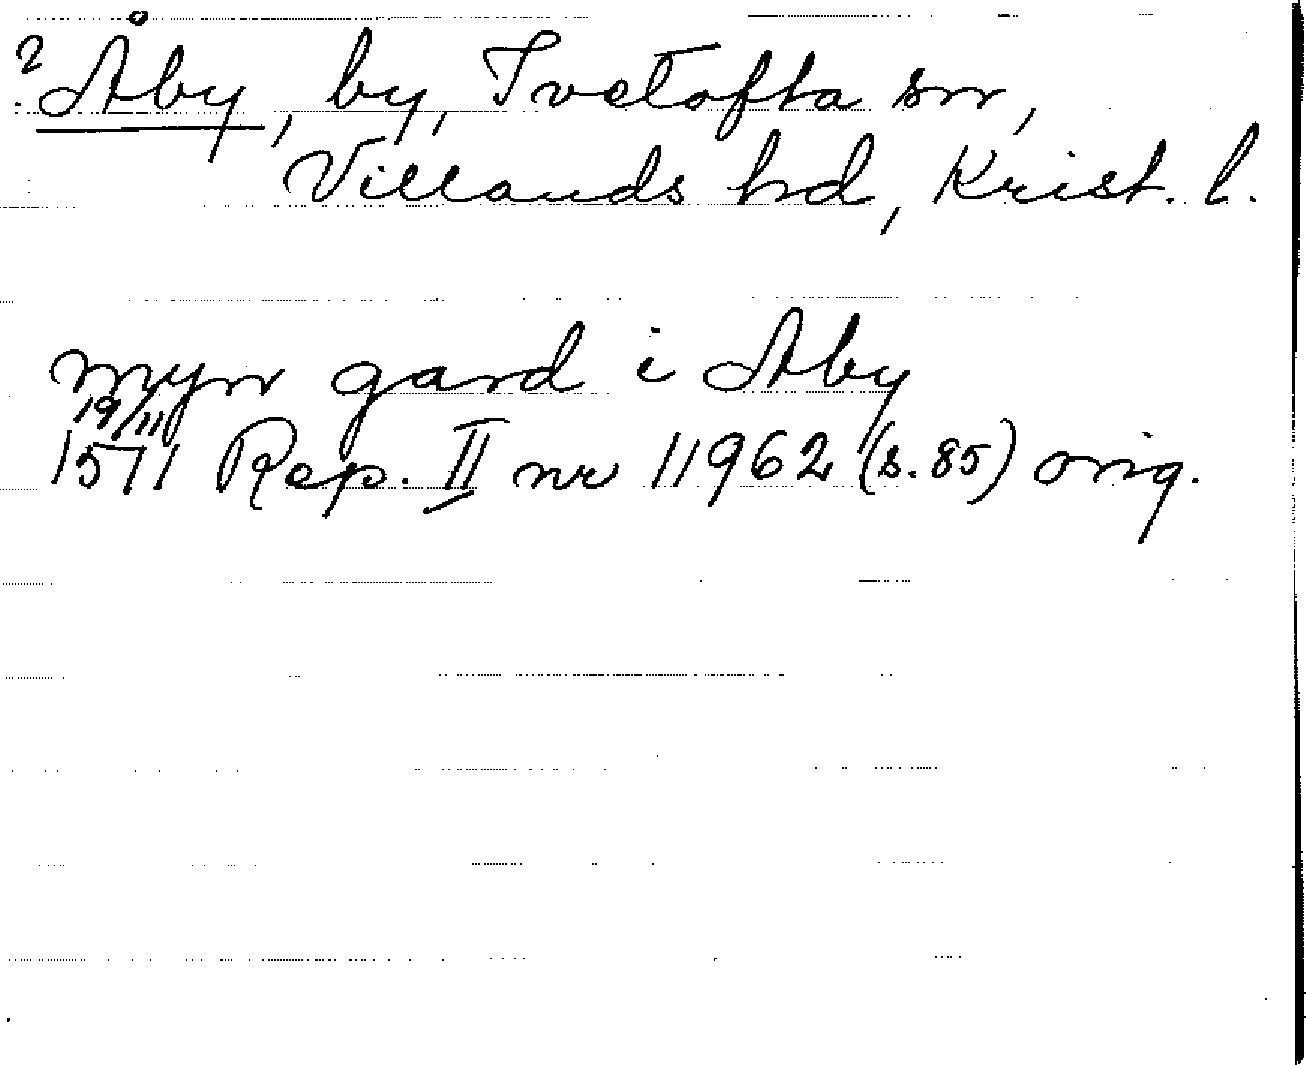 ? Åby, by, Ivetofta sn,
Villands hd, Krist. l.
myn gard i Aby
19/11
1571 Rep. II nr 11962 (s. 85) orig.